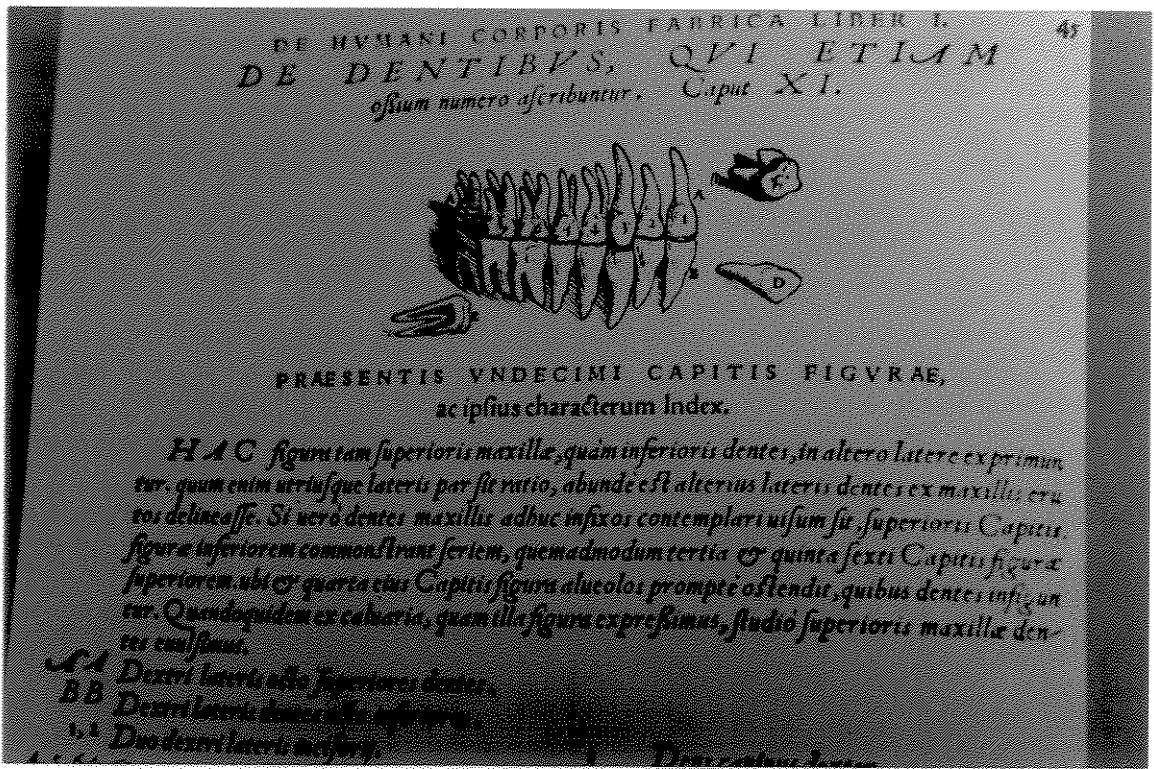 DE HVMANI CORPORIS FABRICA LIBER I. 45
DE DENTIBVS, QVI ETIAM
oſſium numero aſcribuntur. Caput XI.
A
K
B
D
PRAESENTIS VNDECIMI CAPITIS FIGVRAE,
ac ipſius characterum Index.
HAC figura tam ſuperioris maxillæ, quàm inferioris dentes, in altero latere exprimun
tur. quum enim utriuſque lateris par ſit ratio, abunde eſt alterius lateris dentes ex maxillis eru
tos delineaſſe. Si uerò dentes maxillis adhuc infixos contemplari uiſum ſit, ſuperioris Capitis
figuræ inferiorem commonſtrant ſeriem, quemadmodum tertia & quinta ſexti Capitis figuræ
ſuperiorem. ubi & quarta eius Capitis figura alueolos promptè oſtendit, quibus dentes infigun
tur. Quandoquidem ex caluaria, quam illa figura expreßimus, ſtudiò ſuperioris maxillæ den-
tes
AA Dextri lateris octo ſuperiores dentes.
BB Dextri lateris
1, 2 Duo dextri lateris inciſorij.
Dens caninus